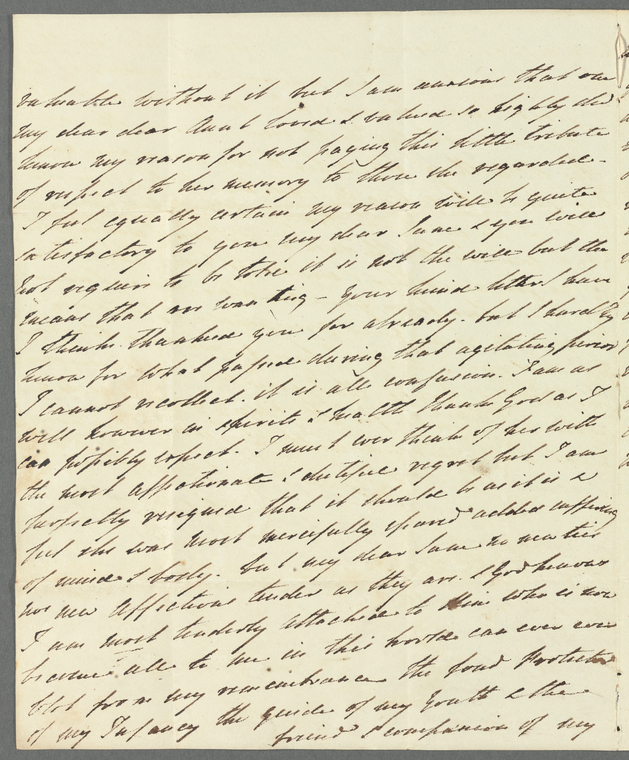 valuable without it but I am anxious that one
my dear dear Aunt loved & valued so highly shd
know my reason for not paying this little tribute
of respect to her memory to those she regarded -
I feel equally certain my reason will be quite
satisfactory to you my dear Jane & you will
not require to be told it is not the will but the
means that are wanting - your kind letters I have
I think thanked you for already. but I hardly
know for what passed during that agitating period
I cannot recollect. it is all confusion. I am as
well however in spirits & health thank God as I
can possibly expect. I must ever think of her with
the most affectionate & dutiful regret but I am
perfectly resigned that it should be as it is &
feel she was most mercifully spared added suffering
of mind & body. but my dear Jane no new ties
no new affections tender as they are & God knows
I am most tenderly attached to Him who is now
become all to me in this world can ever ever
blot from my remembrance the fond Protector
of my Infancy the guide of my Youth & the
friend & companion of my